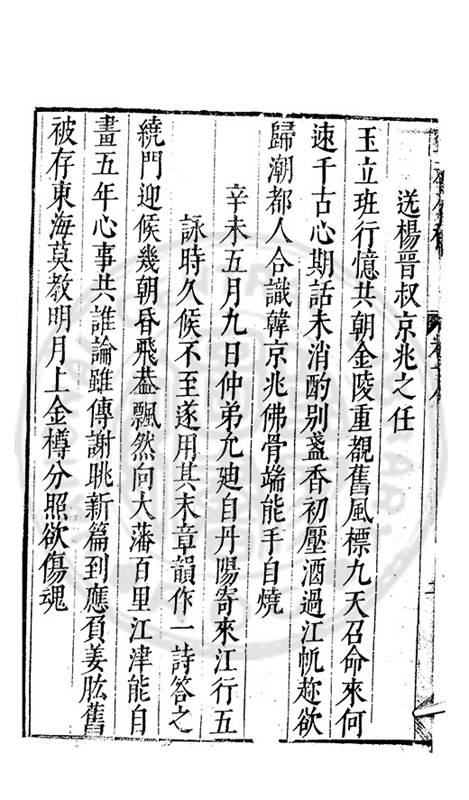 送楊晉叔京兆之任
玉立班行憶共朝金陵重覩舊風標九天召命來何
速千古心期話未消酌别盞香初壓酒過江帆趂欲
歸潮都人合識韓京兆佛骨端能手自燒
辛未五月九日仲弟允廸自丹陽寄來江行五
詠時久候不至遂用其末章韻作一詩答之
繞門迎候幾朝昏飛葢飄然向大藩百里江津能自
畫五年心事共誰論雖傳謝眺新篇到應負姜肱舊
被存東海莫教明月上金樽分照欲傷魂